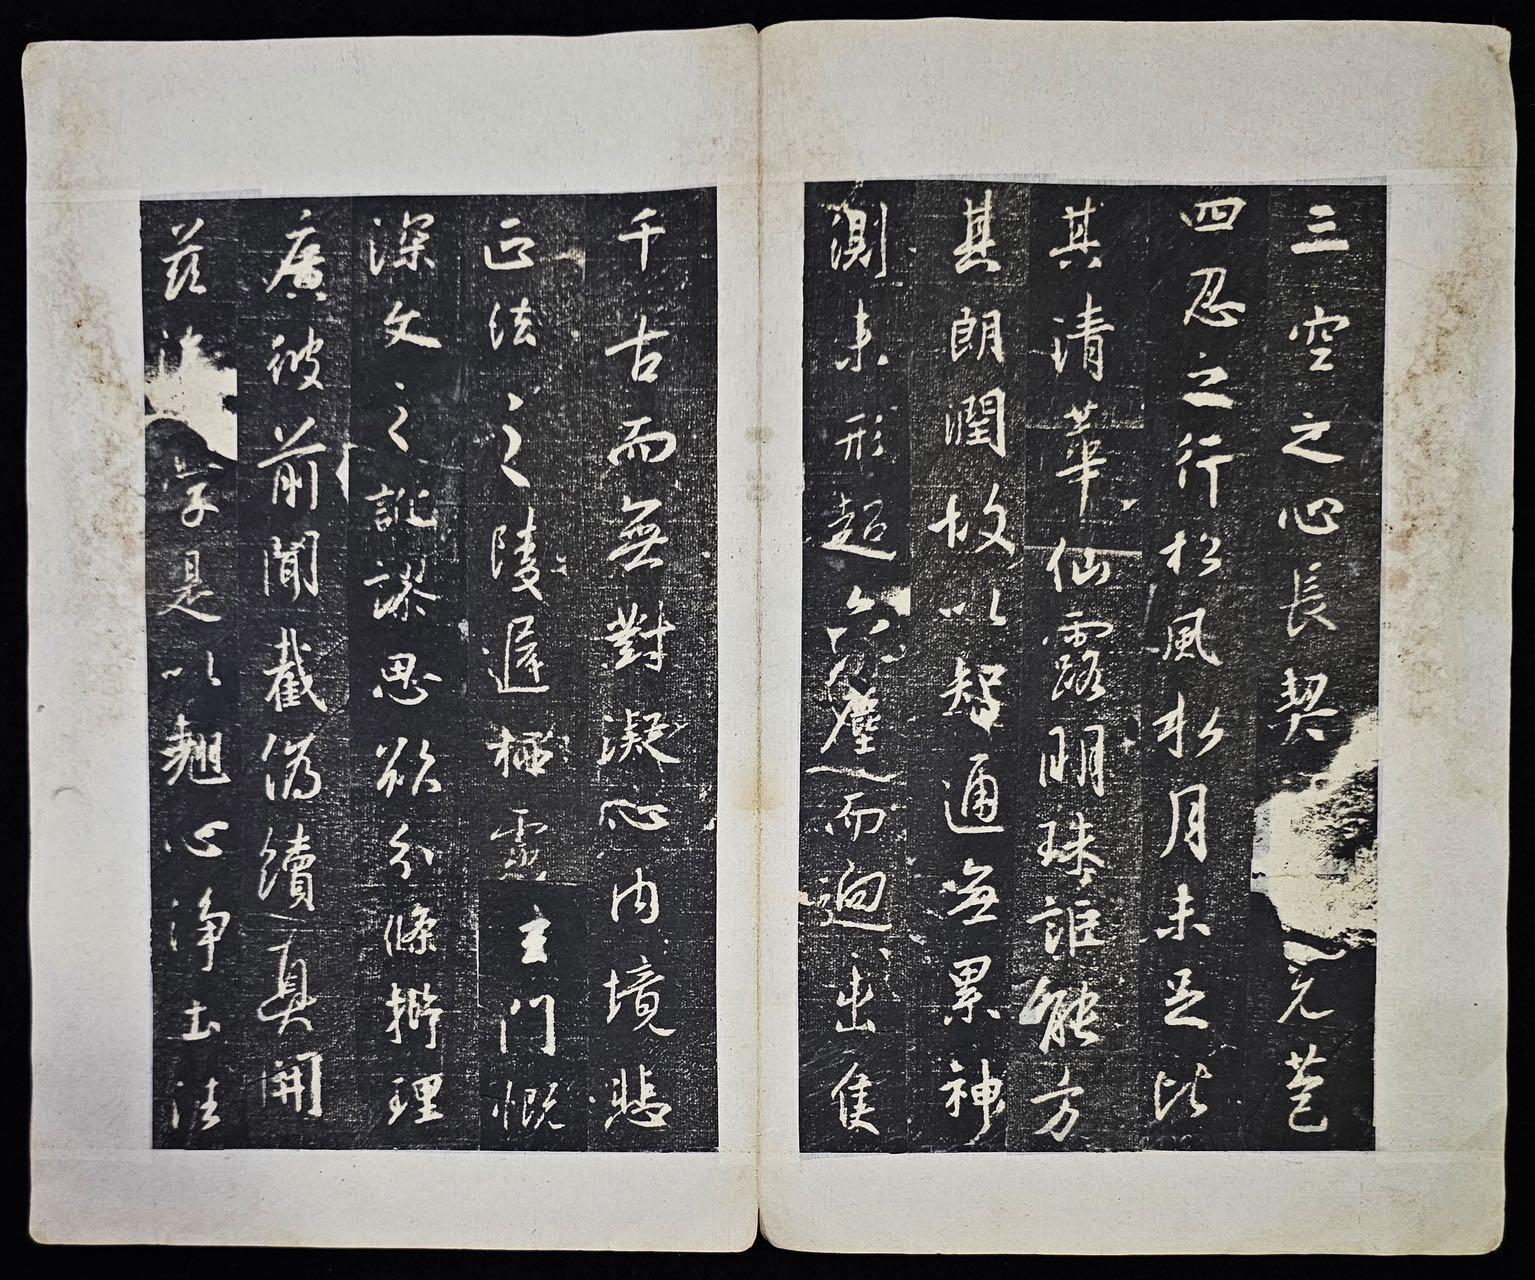 三空之心長契先苞
四忍之行松風水月未足比
其清華仙露明珠詎能方
其朗潤故以智通無累神
測未形超六塵而迥出隻
千古而無對凝心內境悲
正法之陵遲栖慮玄門慨
深文之訛謬思欲分條析理
廣彼前聞截偽續真開
茲後學是以翹心淨土法